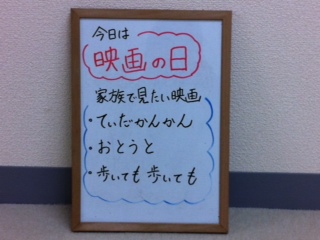 今日は
映画の日
家族で見たい映画
・てぃだかんかん
・おとうと
・歩いても 歩いても